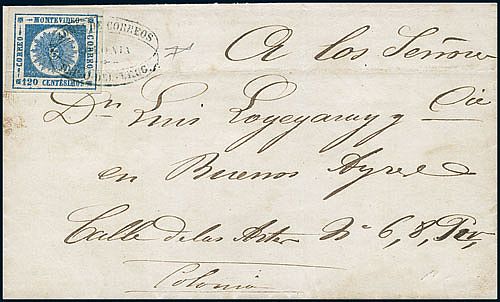 MONTEVIDEO
CORREO
CORREO
120 CENTÉSIMOS
DE CORREOS
A los Señores
Dn Luis Loyegaray y Cia
en Buenos Ayres
Calle de las Artes No 68,
Colonia